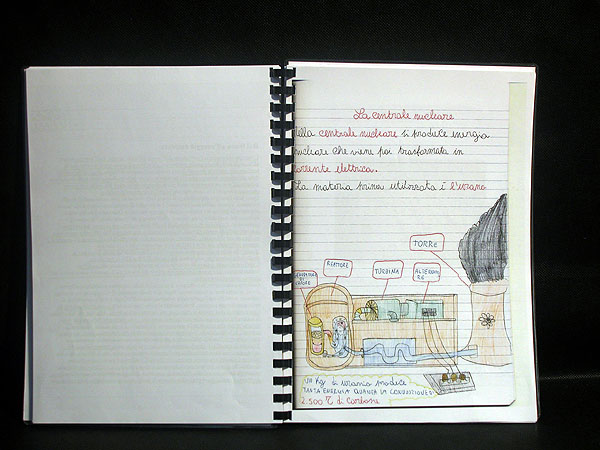 La centrale nucleare
Nella centrale nucleare si produce energia
nucleare che viene poi trasformata in
corrente elettrica.
La materia prima utilizzata è l'uranio
TORRE
REATTORE
TURBINA
ALTERNATO
RE
DI
CALORE
Un Kg di uranio produce
TANTA ENERGIA QUANTA LA COMBUSTIONE
2.500 T di Carbone